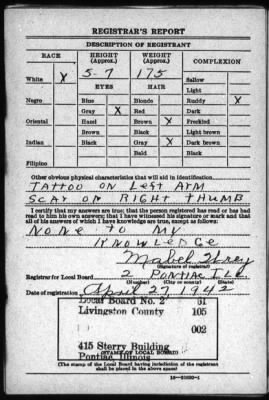 REGISTRAR'S REPORT
DESCRIPTION OF REGISTRANT
RACE HEIGHT (Approx.) WEIGHT (Approx.) COMPLEXION
White X 5-7 175 Sallow
EYES HAIR Light
Negro Blue Blonde Ruddy X
Gray X Red Dark
Oriental Hazel Brown Freckled
Brown Black Light brown
Indian Black Gray X Dark brown
Bald Black
Filipino
Other obvious physical characteristics that will aid in identification
TATTOO ON LEFT ARM
SCAR ON RIGHT THUMB
I certify that my answers are true; that the person registered has read or has had
read to him his own answers; that I have witnessed his signature or mark and that
all of his answers of which I have knowledge are true, except as follows:
NONE TO MY
KNOWLEDGE
Mabel
(Signature of registrar)
Registrar for Local Board 2 PONTIAC ILL
(Number) (City or county) (State)
Date of registration April 27, 1942
Local Board No. 2 61
Livingston County 105
002
415 Sterry Building
Pontiac, Illinois
(STAMP OF LOCAL BOARD)
(The stamp of the Local Board having jurisdiction of the registrant
shall be placed in the above space)